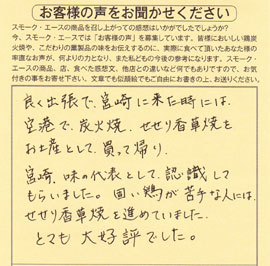 お客様の声をお聞かせください
スモーク・エースの商品を召し上がっての感想はいかがでしたでしょうか?
今、スモーク・エースでは「お客様の声」を募集しています。皆様においしい鶏炭
火焼や、こだわりの燻製品の味をお伝えするのに、実際に食べて頂いたあなた様の
率直なお声が、何よりの力となり、また私どもの今後の参考になります。スモーク・
エースの商品、店、食べた感想文、他店との違いなど何でもありですので、お気
付きの事をお寄せ下さい。文章でも似顔絵でもご自由にお書きの上、お送りください。
良く出張で、宮崎に来た時には、
空港で、炭火焼、せせり香草焼を
お土産として、買って帰り、
宮崎、味の代表として、認識して
もらいました。固い鶏が苦手な人には、
せせり香草焼を進めていました。
とても大好評でした。